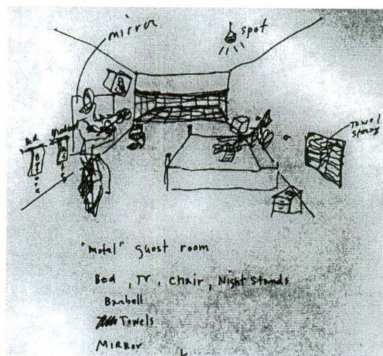 mirror
spot
Towel
"motel" guest room
Bed, TV, chair, Night stands
Barbell
Towels
MIRROR